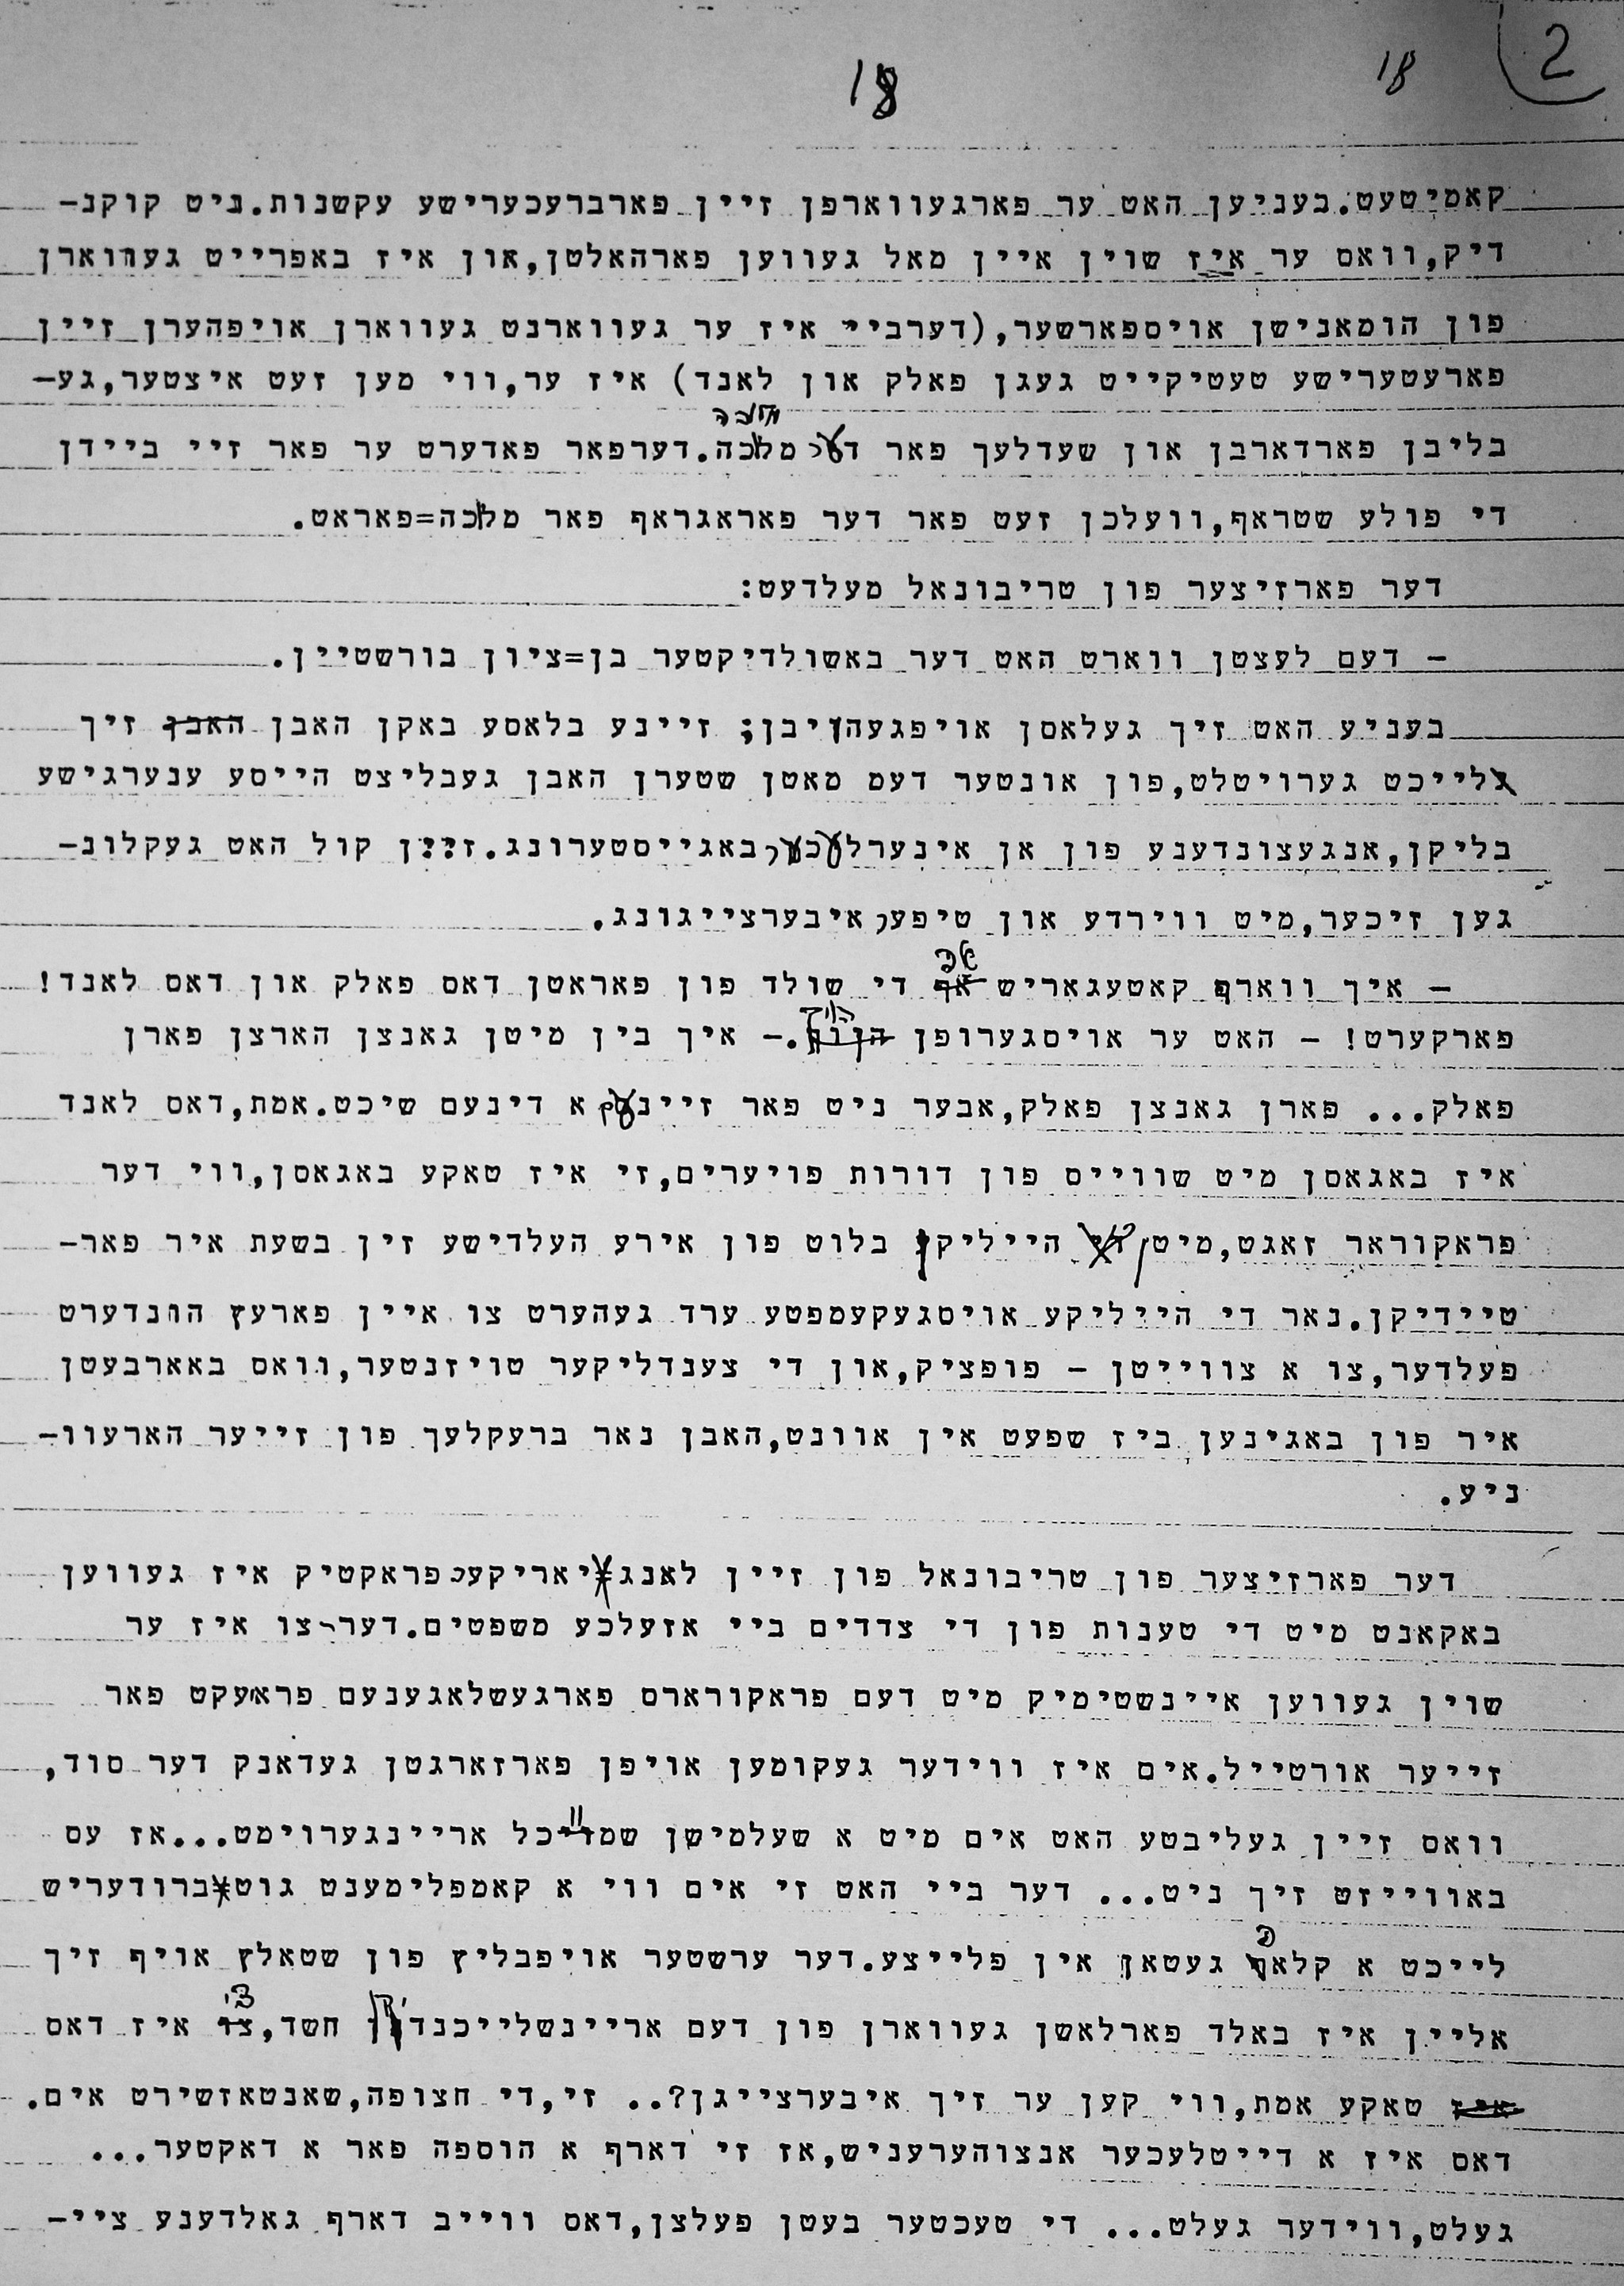 2
18
18
קאמיטעט.בעניען האט ער פארגעווארפן זיין פארברעכערישע עקשנות.ניט קוקנ-
דיק,וואס ער איז שוין איין מאל געווען פארהאלטן,און איז באפרייט געווארן
פון הומאנישן אויספארשער,(דערביי איז ער געווארנט געווארן אויפהערן זיין
פארעטערישע טעטיקייט געגן פאלק און לאנד) איז ער,ווי מען זעט איצטער,גע-
מלוכה
בליבן פארדארבן און שעדלעך פאר דער מלכה.דערפאר פאדערט ער פאר זיי ביידן
די פולע שטראף,וועלכן זעט פאר דער פאראגראף פאר מלכה=פאראט.
דער פארזיצער פון טריבונאל מעלדעט:
- דעם לעצטן ווארט האט דער באשולדיקטער בן=ציון בורשטיין.
בעניע האט זיך געלאסן אויפגעהויבן; זיינע בלאסע באקן האבן האבן זיך
גלייכט גערויטלט,פון אונטער דעם מאטן שטערן האבן געבליצט הייסע ענערגישע
בליקן,אנגעצונדענע פון אן אינערלעכער באגייסטערונג.זיין קול האט געקלונ-
גען זיכער,מיט ווירדע און טיפער איבערצייגונג.
אפ
- איך ווארף קאטעגאריש אף די שולד פון פאראטן דאס פאלק און דאס לאנד!
הויך
פארקערט! - האט ער אויסגערופן הויך.- איך בין מיטן גאנצן הארצן פארן
פאלק... פארן גאנצן פאלק,אבער ניט פאר זיינעם א דינעם שיכט.אמת,דאס לאנד
איז באגאסן מיט שווייס פון דורות פויערים,זי איז טאקע באגאסן,ווי דער
פראקוראר זאגט,מיטן הייליקן בלוט פון אירע העלדישע זין בשעת איר פאר-
טיידיקן.נאר די הייליקע אויסגעקעמפטע ערד געהערט צו איין פארעץ הונדערט
פעלדער,צו א צווייטן - פופציק,און די צענדליקער טויזנטער,וואס באארבעטן
איר פון באגינען ביז שפעט אין אוונט,האבן נאר ברעקלעך פון זייער הארעוו-
ניע.
דער פארזיצער פון טריבונאל פון זיין לאנגיאריקער פראקטיק איז געווען
באקאנט מיט די טענות פון די צדדים ביי אזעלכע משפטים.דערצו איז ער
שוין געווען איינשטימיק מיט דעם פראקורארס פארגעשלאגענעם פראעקט פאר
זייער אורטייל.אים איז ווידער געקומען אויפן פארזארגטן געדאנק דער סוד,
וואס זיין געליבטע האט אים מיט א שעלמישן שמייכל אריינגערוימט...אז עס
באווייזט זיך ניט... דער ביי האט זי אים ווי א קאמפלימענט גוטברודעריש
פ
לייכט א קלאף געטאן אין פלייצע.דער ערשטער אויפבליץ פון שטאלץ אויף זיך
צי
אליין איז באלד פארלאשן געווארן פון דעם אריינשלייכנדיקן חשד,צו איז דאס
איז טאקע אמת,ווי קען ער זיך איבערצייגן?.. זי,די חצופה,שאנטאזשירט אים.
דאס איז א דייטלעכער אנצוהערעניש,אז זי דארף א הוספה פאר א דאקטער...
געלט,ווידער געלט... די טעכטער בעטן פעלצן,דאס ווייב דארף גאלדענע ציי-